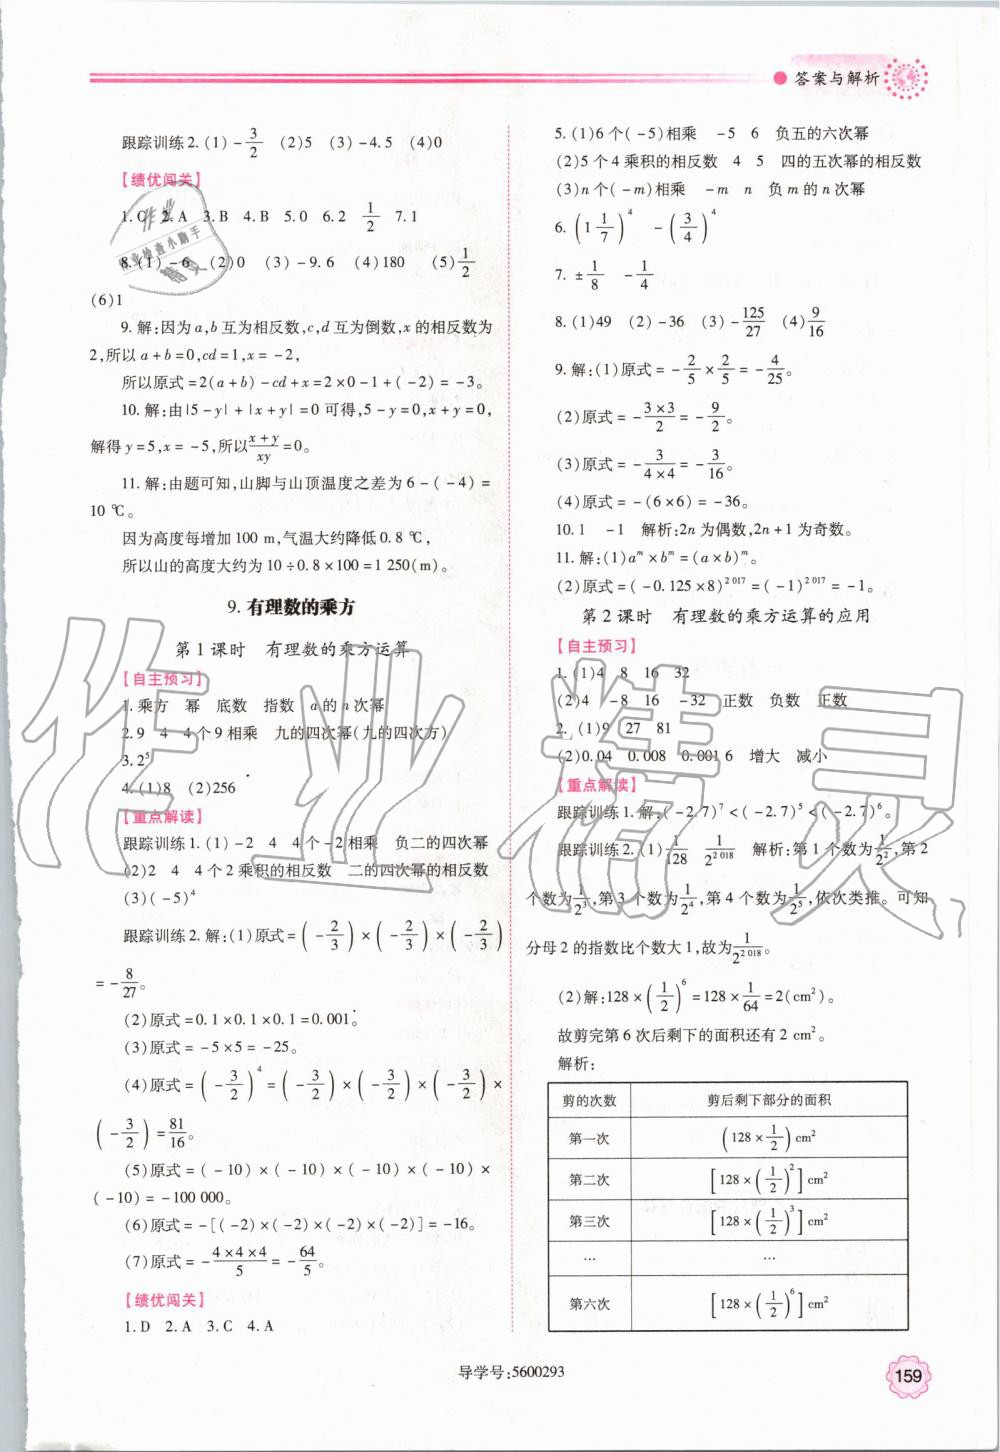 答案与解析
跟踪训练2.(1)-3/2 (2)5 (3)-4.5 (4)0
【绩优闯关】
1.C 2.A 3.B 4.B 5.0 6.2 1/2 7.1
8.(1)-6 (2)0 (3)-9.6 (4)180 (5)1/2
(6)1
9.解:因为a,b互为相反数,c,d互为倒数,x的相反数为
2,所以a+b=0,cd=1,x=-2,
所以原式=2(a+b)-cd+x=2×0-1+(-2)=-3。
10.解:由|5-y|+|x+y|=0可得,5-y=0,x+y=0,
解得y=5,x=-5,所以(x+y)/xy=0。
11.解:由题可知,山脚与山顶温度之差为6-(-4)=
10 ℃。
因为高度每增加100 m,气温大约降低0.8 ℃,
所以山的高度大约为10÷0.8×100=1 250(m)。
9. 有理数的乘方
第1课时 有理数的乘方运算
【自主预习】
1.乘方 幂 底数 指数 a的n次幂
2.9 4 4个9相乘 九的四次幂(九的四次方)
3.2⁵
4.(1)8 (2)256
【重点解读】
跟踪训练1.(1)-2 4 4个-2相乘 负二的四次幂
(2)2 4 4个2乘积的相反数 二的四次幂的相反数
(3)(-5)⁴
跟踪训练2.解:(1)原式=(-2/3)×(-2/3)×(-2/3)
=-8/27。
(2)原式=0.1×0.1×0.1=0.001。
(3)原式=-5×5=-25。
(4)原式=(-3/2)⁴=(-3/2)×(-3/2)×(-3/2)×
(-3/2)=81/16。
(5)原式=(-10)×(-10)×(-10)×(-10)×
(-10)=-100 000。
(6)原式=-[(-2)×(-2)×(-2)×(-2)]=-16。
(7)原式=-4×4×4/5=-64/5。
【绩优闯关】
1.D 2.A 3.C 4.A
5.(1)6个(-5)相乘 -5 6 负五的六次幂
(2)5个4乘积的相反数 4 5 四的五次幂的相反数
(3)n个(-m)相乘 -m n 负m的n次幂
6.(1 1/7)⁴ -(3/4)⁴
7.±1/8 -1/4
8.(1)49 (2)-36 (3)-125/27 (4)9/16
9.解:(1)原式=-2/5×2/5=-4/25。
(2)原式=-3×3/2=-9/2。
(3)原式=-3/4×4=-3/16。
(4)原式=-(6×6)=-36。
10.1 -1 解析:2n为偶数,2n+1为奇数。
11.解:(1)aᵐ×bᵐ=(a×b)ᵐ。
(2)原式=(-0.125×8)²⁰¹⁷=(-1)²⁰¹⁷=-1。
第2课时 有理数的乘方运算的应用
【自主预习】
1.(1)4 8 16 32
(2)4 -8 16 -32 正数 负数 正数
2.(1)9 27 81
(2)0.04 0.008 0.001 6 增大 减小
【重点解读】
跟踪训练1.解:(-2.7)⁷<(-2.7)⁵<(-2.7)⁶。
跟踪训练2.(1)1/128 1/2²⁰¹⁸ 解析:第1个数为1/2²,第2
个数为1/2³,第3个数为1/2⁴,第4个数为1/2⁵,依次类推。可知
分母2的指数比个数大1,故为1/2²⁰¹⁸。
(2)解:128×(1/2)⁶=128×1/64=2(cm²)。
故剪完第6次后剩下的面积还有2 cm²。
解析:
剪的次数 剪后剩下部分的面积
第一次 (128×1/2)cm²
第二次 [128×(1/2)²]cm²
第三次 [128×(1/2)³]cm²
… …
第六次 [128×(1/2)⁶]cm²
导学号:5600293
159
作业精灵